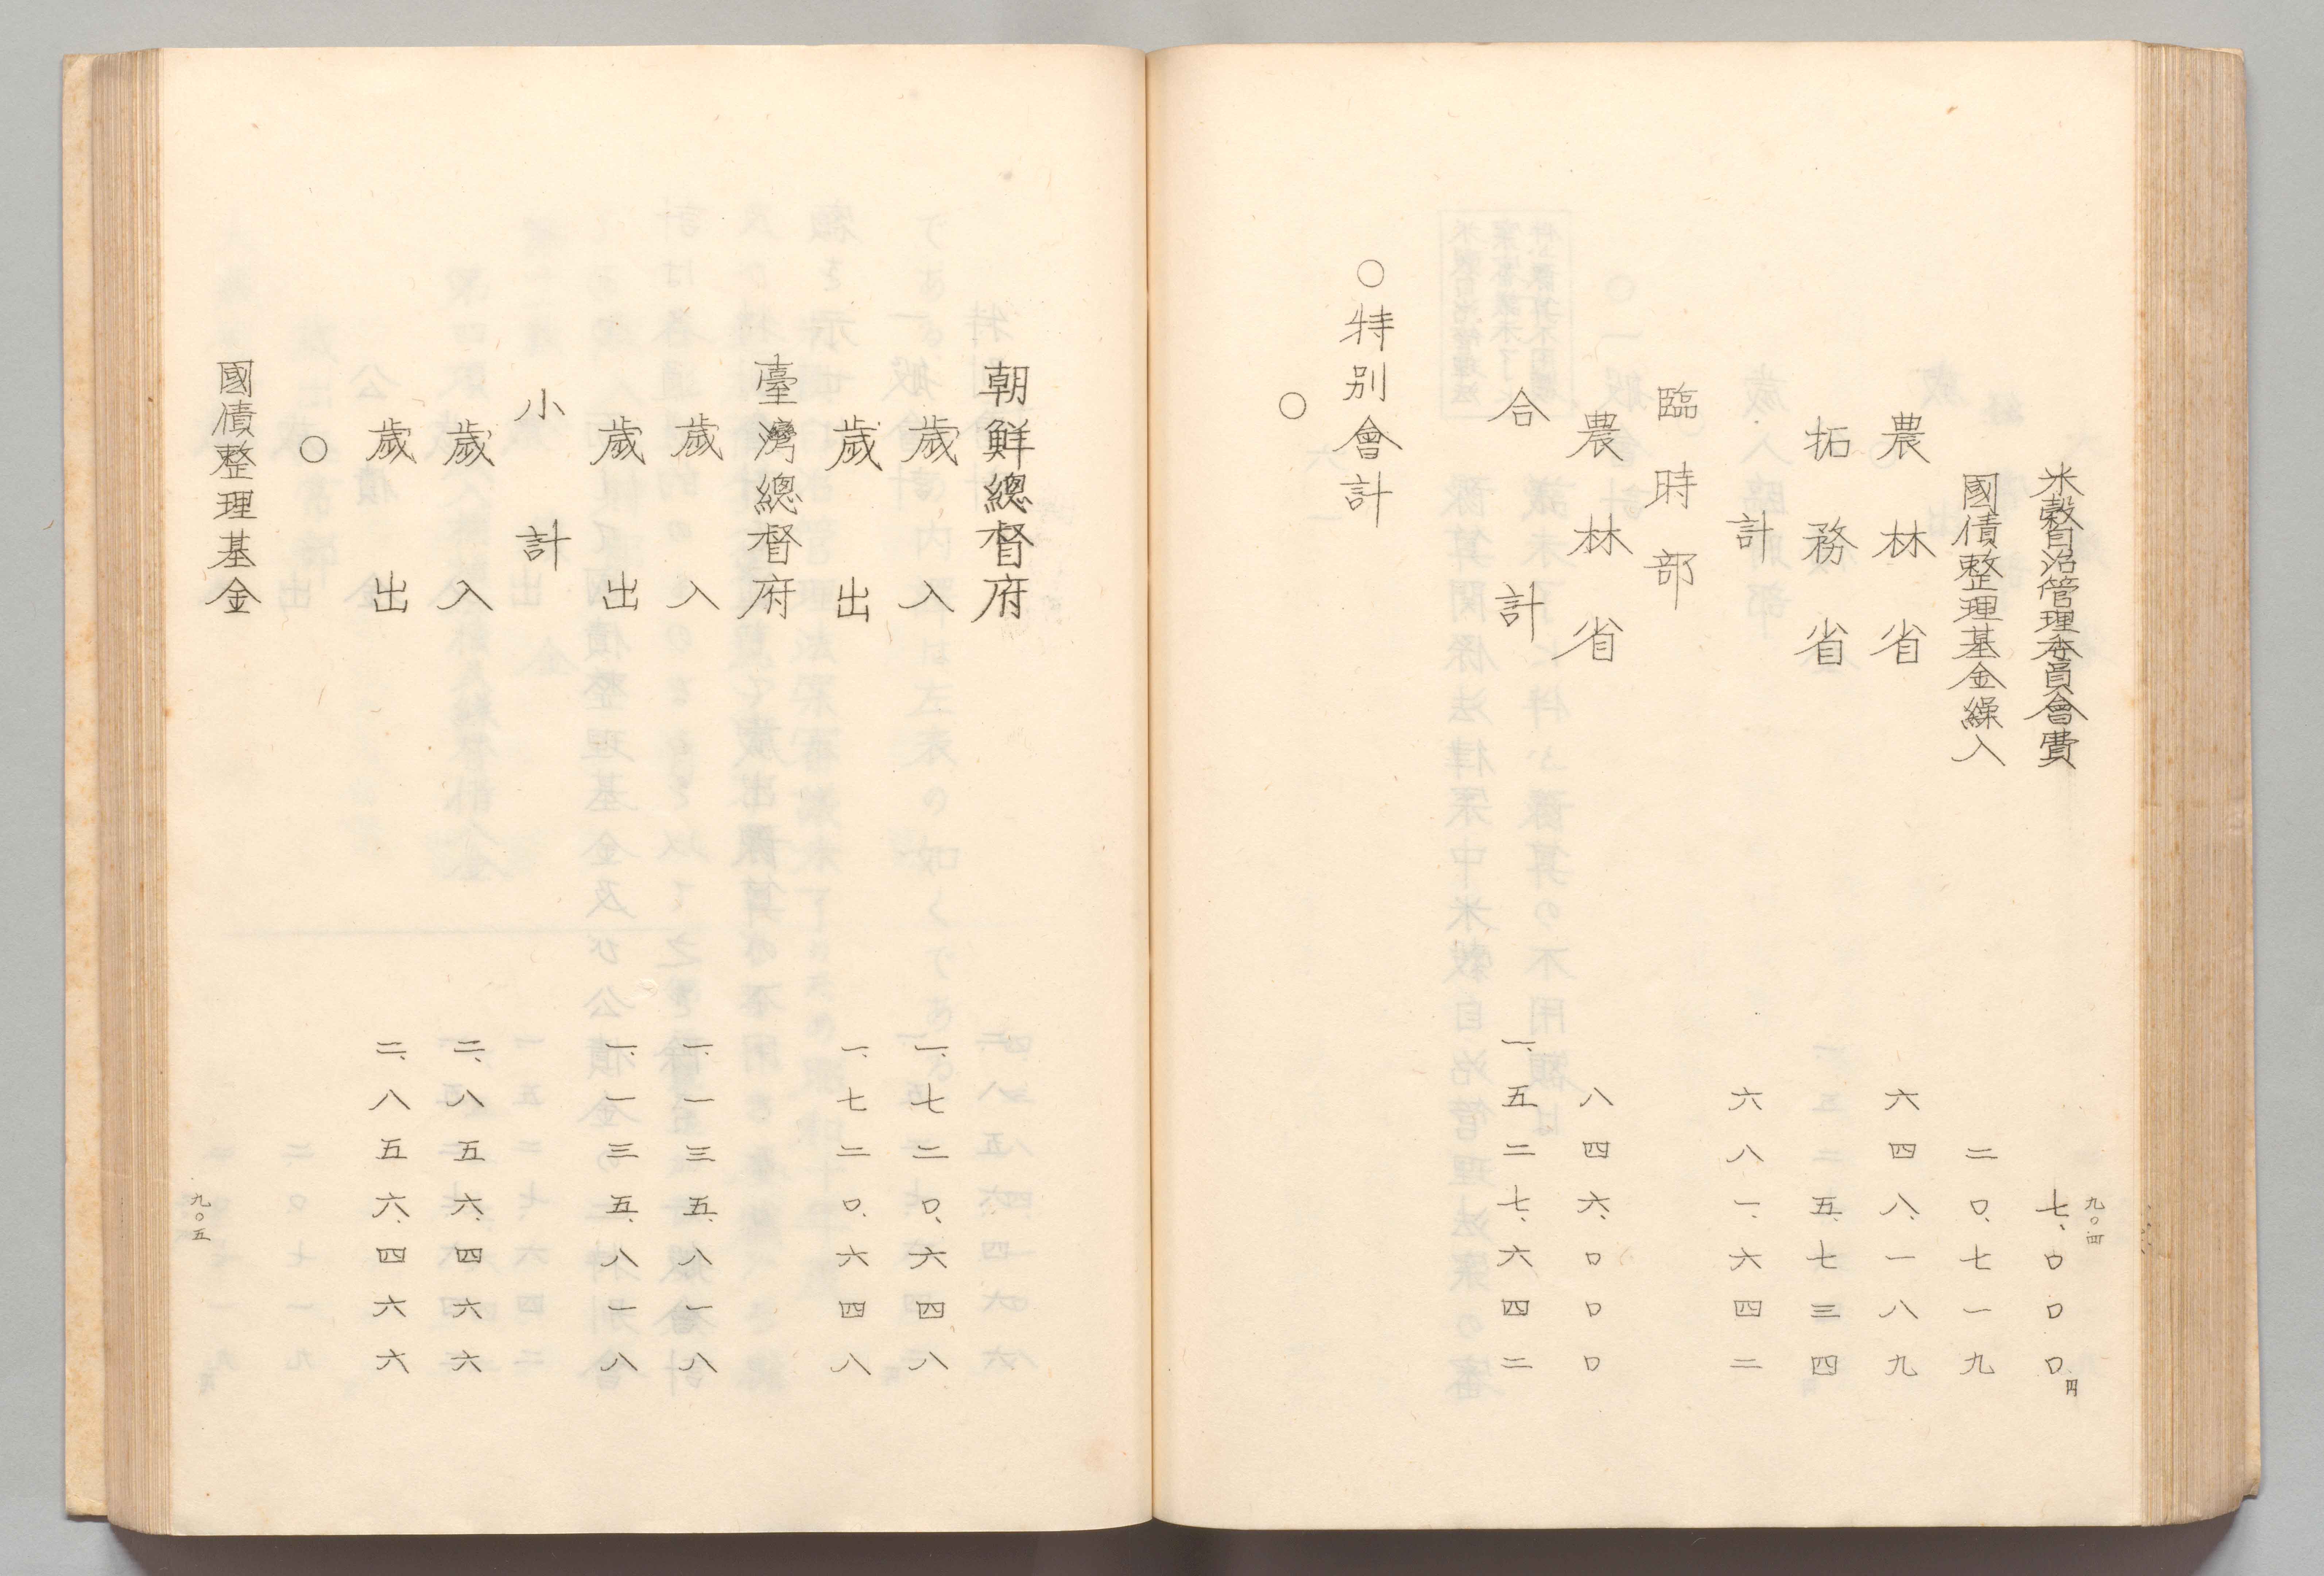 九〇四
米穀自治管理委員會費 七、〇〇〇円
國債整理基金繰入 二〇、七一九
農林省 六四八、一八九
拓務省 五、七三四
計 六八一、六四二
臨時部
農林省 八四六、〇〇〇
合計 一、五二七、六四二
〇特別會計
〇
朝鮮總督府
歲入 一、七二〇、六四八
歲出 一、七二〇、六四八
臺灣總督府
歲入 一、一三五、八一八
歲出 一、一三五、八一八
小計
歲入 二、八五六、四六六
歲出 二、八五六、四六六
〇
國債整理基金
九〇五